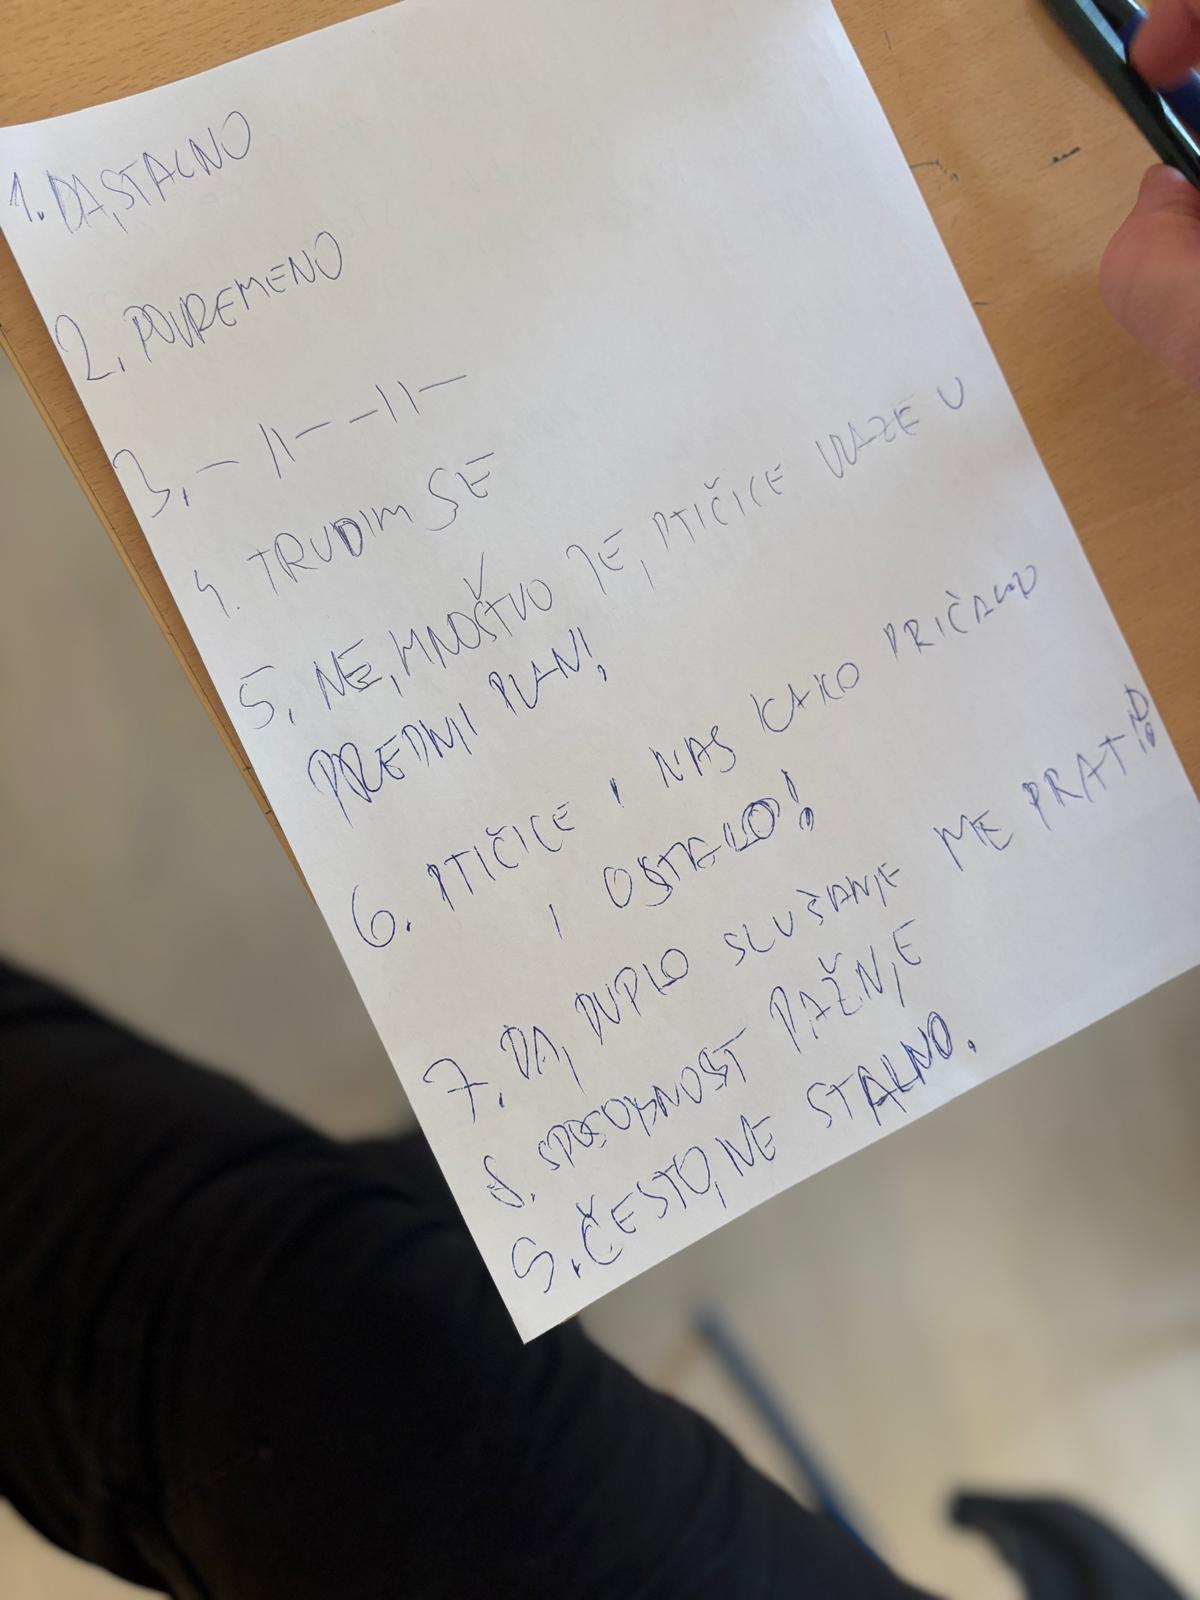 1. DA, STALNO
2. POVREMENO
3. — 11 — — 11 —
4. TRUDIM SE
5. NE, MNOŠTVO JE, PTIČICE ULAZE U
PREDNJI PLAN!
6. PTIČICE I NAS KAKO PRIČAMO
I OSTALO!
7. DA, DUPLO SLUŠANJE ME PRATI
8. SPOSOBNOST PAŽNJE
9. ČESTO, NE STALNO.